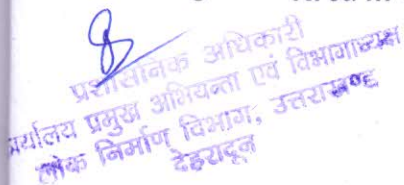 प्रशासनिक अधिकारी
कार्यालय प्रमुख अभियन्ता एवं विभागाध्यक्ष
लोक निर्माण विभाग, उत्तराखण्ड
देहरादून